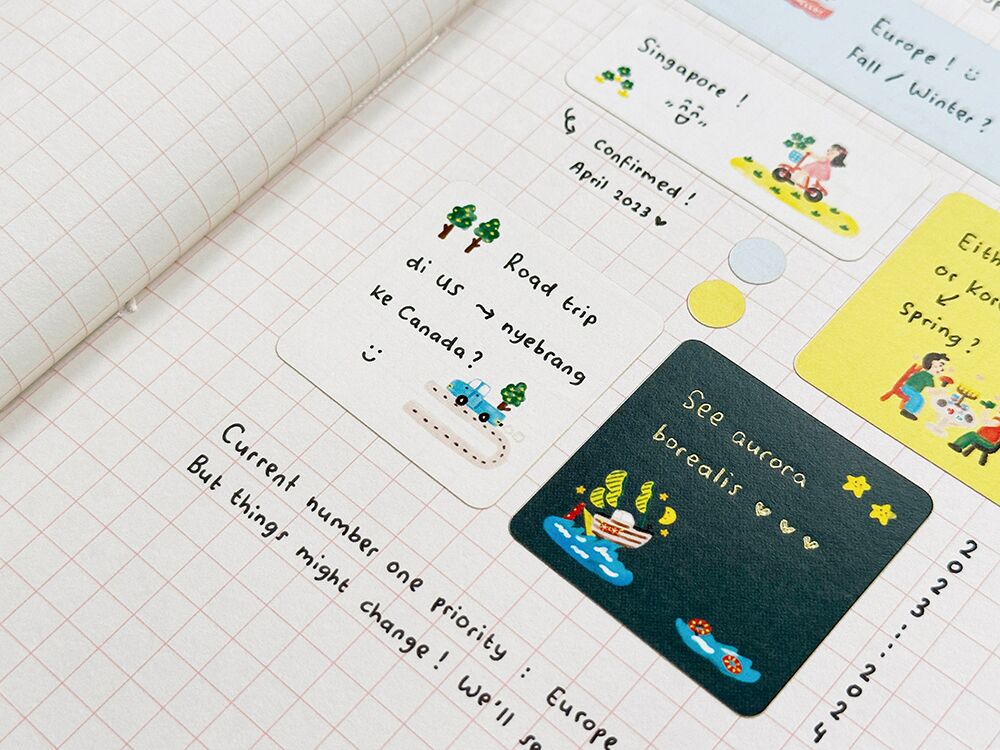 Europe ! :)
Fall / Winter ?
Singapore !
confirmed !
April 2023 ♥
Road trip
di US → nyebrang
ke Canada ?
:)
or
Spring ?
See aurora
borealis ♡ ♡ ♡
2023 ... 2024
Current number one priority : Europe
But things might change ! We'll